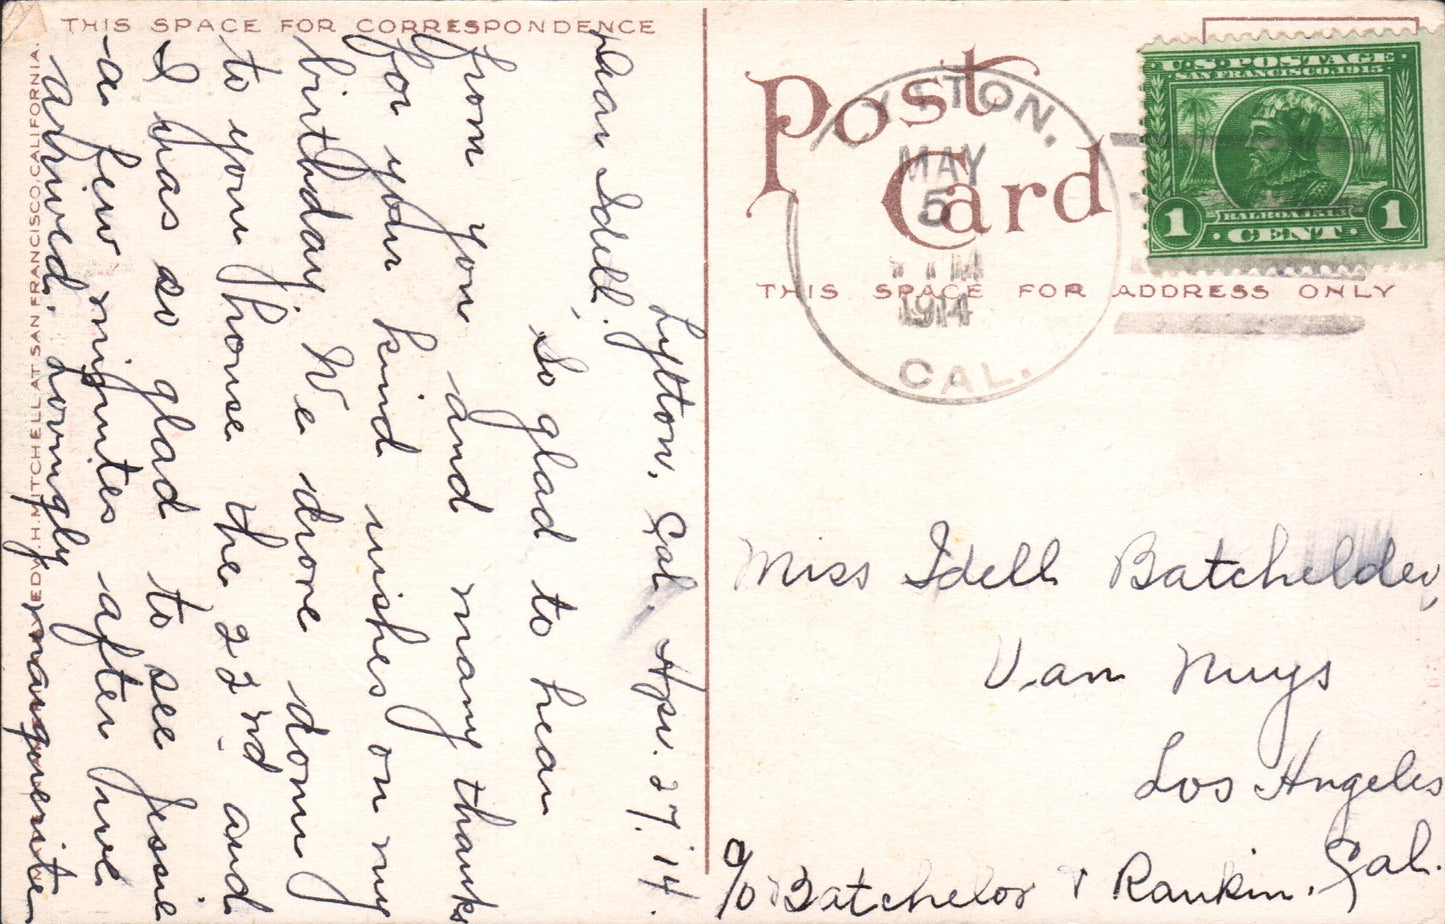 THIS SPACE FOR CORRESPONDENCE
Lytton, Cal. Apr. 27. '14.
Dear Idell,
So glad to hear
from you and many thanks
for your kind wishes on my
birthday. We drove down
to your house the 22nd and
I was so glad to see Jessie
a few minutes after we
arrived. Lovingly
Marguerite
EDW. H. MITCHELL AT SAN FRANCISCO, CALIFORNIA.
Post
Card
THIS SPACE FOR ADDRESS ONLY
LYTTON,
MAY
5
1914
CAL.
U.S. POSTAGE
SAN FRANCISCO, 1915
BALBOA, 1513
1 CENT 1
Miss Idell Batchelder,
Van Nuys
Los Angeles
Cal.
c/o Batchelor & Rankin.